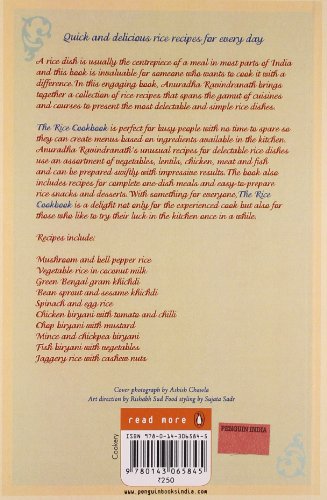 Quick and delicious rice recipes for every day
A rice dish is usually the centrepiece of a meal in most parts of India
and this book is invaluable for someone who wants to cook it with a
difference. In this engaging book, Anuradha Ravindranath brings
together a collection of rice recipes that spans the gamut of cuisines
and courses to present the most delectable and simple rice dishes.
The Rice Cookbook is perfect for busy people with no time to spare so
they can create menus based on ingredients available in the kitchen.
Anuradha Ravindranath's unusual recipes for delectable rice dishes
use an assortment of vegetables, lentils, chicken, meat and fish
and can be prepared swiftly with impressive results. The book also
includes recipes for complete one-dish meals and easy-to-prepare
rice snacks and desserts. With something for everyone, The Rice
Cookbook is a delight not only for the experienced cook but also for
those who like to try their luck in the kitchen once in a while.
Recipes include:
Mushroom and bell pepper rice
Vegetable rice in coconut milk
Green Bengal gram khichdi
Bean sprout and sesame khichdi
Spinach and egg rice
Chicken biryani with tomato and chilli
Chop biryani with mustard
Mince and chickpea biryani
Fish biryani with vegetables
Jaggery rice with cashew nuts
Cover photograph by Ashish Chawla
Art direction by Rishabh Sud Food styling by Sujata Sadr
read more
PENGUIN INDIA
Cookery
ISBN 978-0-14-306584-5
9 780143 065845
₹250
www.penguinbooksindia.com